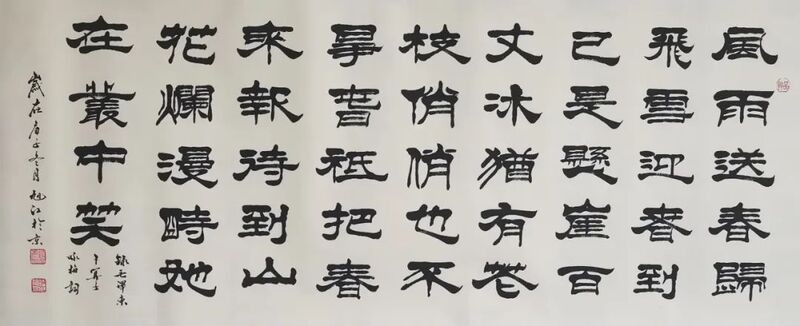 風雨送春歸
飛雪迎春到
已是懸崖百
丈冰猶有花
枝俏俏也不
爭春祇把春
來報待到山
花爛漫時她
在叢中笑
錄毛澤東
卜算子
咏梅詞
歲在庚子冬月旭江於京